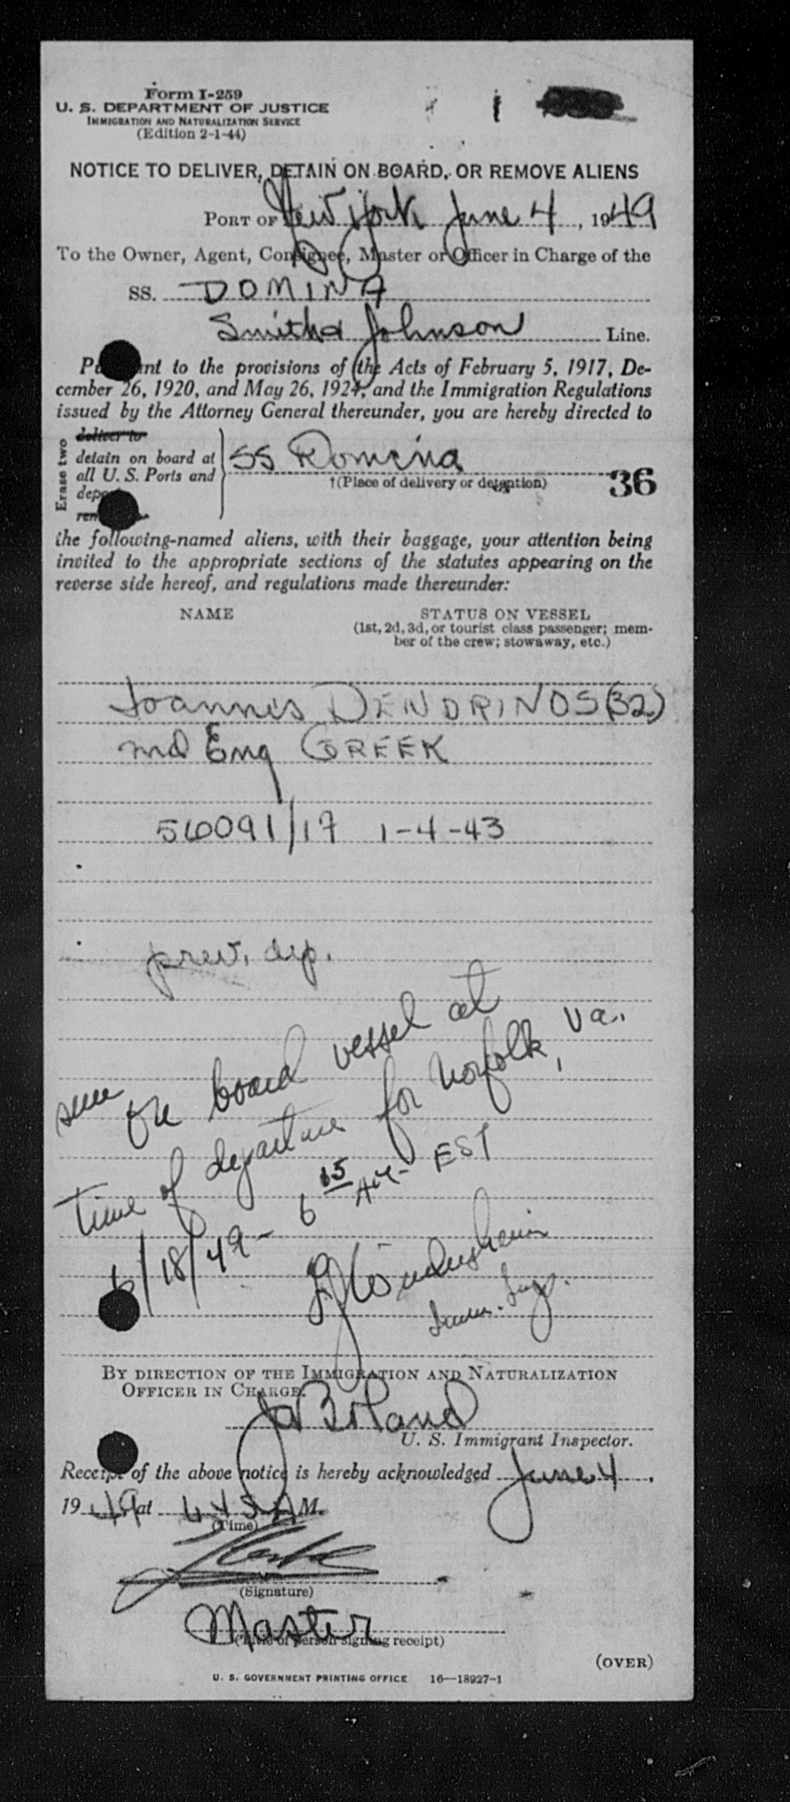 Form I-259
U. S. DEPARTMENT OF JUSTICE
IMMIGRATION AND NATURALIZATION SERVICE
(Edition 2-1-44)
NOTICE TO DELIVER, DETAIN ON BOARD, OR REMOVE ALIENS
PORT OF New York June 4, 1949
To the Owner, Agent, Consignee, Master or Officer in Charge of the
SS. DOMINA
Smith & Johnson Line.
Pursuant to the provisions of the Acts of February 5, 1917, De-
cember 26, 1920, and May 26, 1924, and the Immigration Regulations
issued by the Attorney General thereunder, you are hereby directed to
Erase two
deliver to
detain on board at
all U. S. Ports and
SS Domina
†(Place of delivery or detention)
36
the following-named aliens, with their baggage, your attention being
invited to the appropriate sections of the statutes appearing on the
reverse side hereof, and regulations made thereunder:
NAME STATUS ON VESSEL
(1st, 2d, 3d, or tourist class passenger; mem-
ber of the crew; stowaway, etc.)
Ioannis DENDRINOS (32)
2nd Eng GREEK
56091/17 1-4-43
prev. dep.
seen on board vessel at
time of departure for Norfolk, Va.
6/18/49 - 6 15 AM - EST
Imm. Insp.
BY DIRECTION OF THE IMMIGRATION AND NATURALIZATION
OFFICER IN CHARGE.
J A Boland
U. S. Immigrant Inspector.
Receipt of the above notice is hereby acknowledged June 4,
1949 at 645 A M.
(Time)
(Signature)
Master
(Title of person signing receipt)
(OVER)
U. S. GOVERNMENT PRINTING OFFICE 16—18927-1